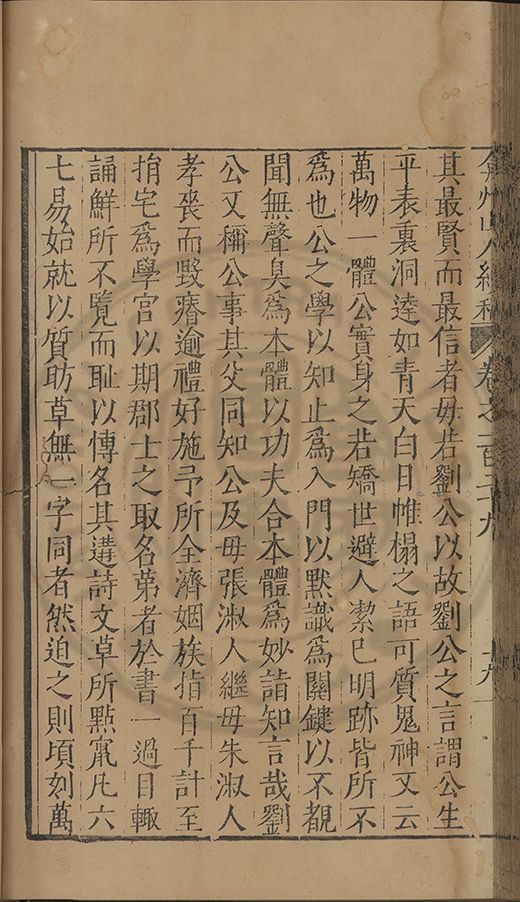 弇州山人續稿 卷之一百二十九 十九
其最賢而最信者毋若劉公以故劉公之言謂公生
平表裏洞逹如青天白日帷榻之語可質鬼神又云
萬物一體公實身之若矯世避人潔已明跡皆所不
爲也公之學以知止爲入門以默識爲關鍵以不覩
聞無聲臭爲本體以功夫合本體爲妙詣知言哉劉
公又稱公事其父同知公及母張淑人繼母朱淑人
孝喪而毀瘠逾禮好施予所全濟姻族指百千計至
捐宅爲學宮以期郡士之取名苐者於書一過目輙
誦鮮所不覽而耻以慱名其遘詩文草所點竄凡六
七易始就以質昉草無一字同者然迫之則頃刻萬